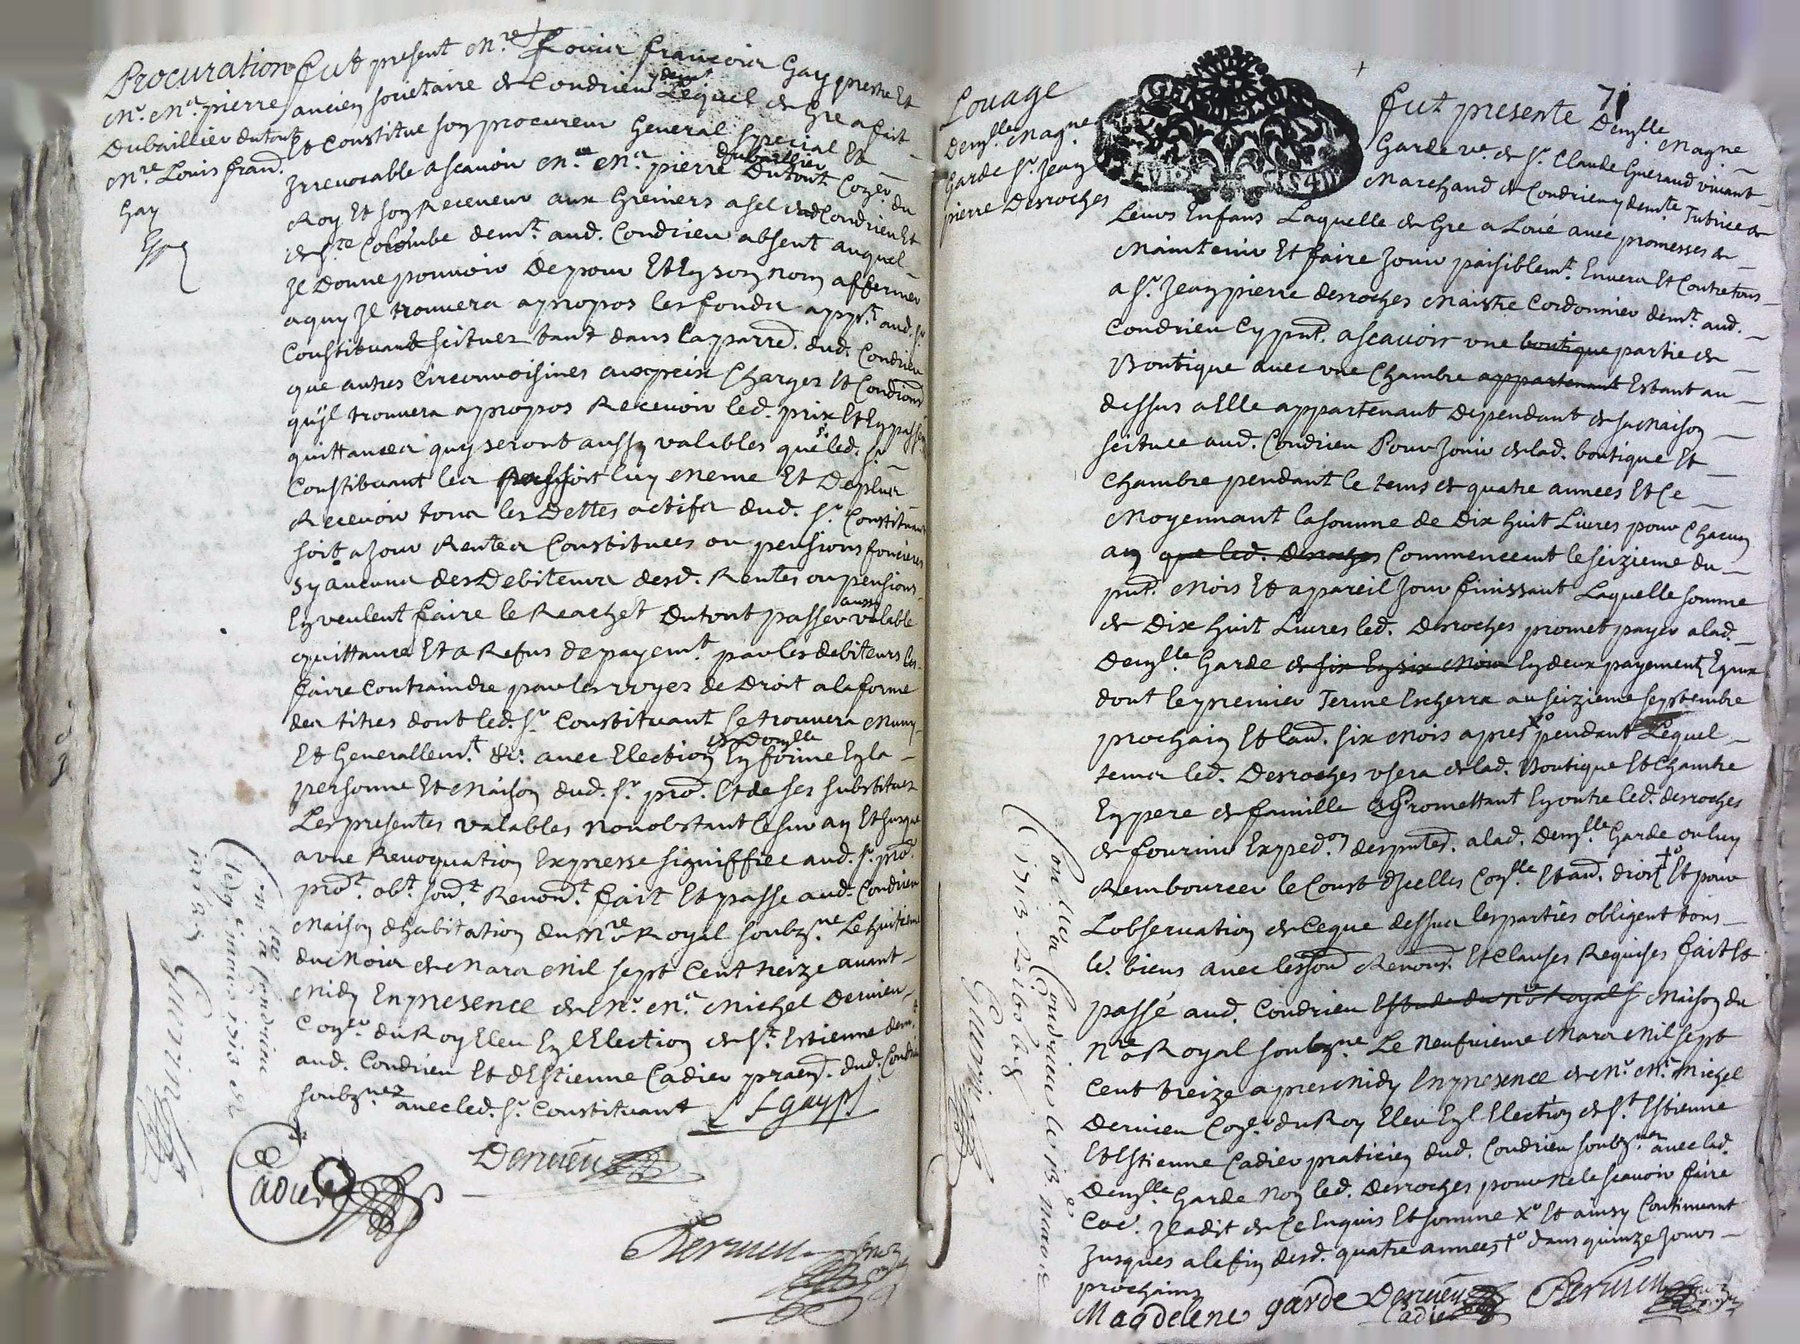 Procuration
Mr. Me. pierre
Dubaillier dutout
Mre Louis franc.
Gay
Fut present Mre Louis francois Gay prestre Et
ancien societaire de Condrieu y demt Lequel de Gre a fait
Et Constitue son procureur General special Et
Irrevocable ascavoir Mr. Me. pierre dubaillier Dutout Coner. du
Roy Et son Receveur aux Greniers a sel dud Condrieu Et
de Ste Colombe demt. aud. Condrieu absent auquel
Il Donne pouvoir De pour Et En son nom affermer
a quy Il trouvera apropos les fonds appt. aud. sr
Constituant scitues tant dans la parre. dud. Condrieu
que autres Circonvoisines aux prix Charges Et Condions
qu'il trouvera apropos Recevoir led. prix Et En passer
quittances quy seront aussy valables que sy led. sr
Constituant les passoit luy meme Et De plus
Recevoir tous les Dettes actifs dud. sr. Constituant
soit a jour Rentes Constituees ou pensions foncieres
sy aucuns des Debiteurs desd. Rentes ou pensions
En veulent faire le Reachet Du tout passer aussy valable
quittance Et a Refus de payemt. par les debiteurs les
faire Contraindre par les voyes de Droit a la forme
des titres dont led. sr. Constituant se trouvera Muny
Et Generallemt. &c. avec Election de Domlle En forme En la
personne Et Maison dud. sr. pro. Et de ses substitues
Les presentes valables nonobstant le sur an Et jusque
a une Revoquation Expresse signiffiee aud. sr. pro.
prot. obt. sout. Renont. fait Et passe aud. Condrieu
Maison d'habitation du Nre Royal soubzne Le huitieme
du Mois de Mars Mil sept Cent treize avant
Midy En presence de Mr. Me. Michel Dervieu
Coner du Roy Eleu En l'Election de St. Estienne demt.
aud. Condrieu Et d'Estienne Cadier praen. dud. Condrieu
soubznez avec led. sr. Constituant L gay
Cadier
Dervieu
Louage
Demlle Magne
Garde Sr. Jean
pierre Desroches
71
Fut presente Demlle Magne
Garde ve. de Sr. Claude Gueraud vivant
Marchand de Condrieu y demte Tutrice de
Leurs Enfans Laquelle de Gre a Loué avec promesses de
Maintenir Et faire Jouir paisiblemt. Envers Et Contre tous
a Sr. Jean pierre desroches Maistre Cordonnier demt. aud.
Condrieu Cy pnt. ascavoir une boutique partie de
Boutique avec une Chambre appartenant Estant au
dessus a Elle appartenant Dependant de sa Maison
scituee aud. Condrieu Pour Jouir de lad. boutique Et
Chambre pendant le tems de quatre années Et Ce
Moyennant la somme de Dix huit Livres pour Chacun
an que led. Desroches Commenceant le seizieme du
pnt. Mois Et a pareil Jour finissant Laquelle somme
de Dix huit Livres led. Desroches promet payer a lad.
Demlle Garde de six En six Mois En deux payements Egaux
dont le premier Terme Escherra au seizieme septembre
prochain Et l'au. six Mois apres xo pendant Lequel
tems led. Desroches usera de lad. Boutique Et Chambre
En pere de famille Promettant En outre led. desroches
de fournir Exped.on des pntes. a lad. Demlle Garde ou luy
Rembourcer le Coust d'Icelles Et pour
L'observation de Ce que dessus les parties obligent tous
le. biens avec les sou. Renon. Et Clauses Requises fait Et
passé aud. Condrieu Estude du Nre Royal s Maison du
Nre Royal soubzne. Le Neufvieme Mars Mil sept
Cent treize apres Midy En presence de Mr. Me. Michel
Dervieu Coner. du Roy Eleu En l'Election de St Estienne
Et Estienne Cadier praticien dud. Condrieu soubznez avec lad.
Demlle Garde Non led. Desroches pour Ne le scavoir faire
Il a dit de Ce Enquis Et somme xo Et ainsy Continuant
Jusques a la fin desd. quatre annees to dans quinze Jours
prochains
Magdelene garde Dervieu
Cadier